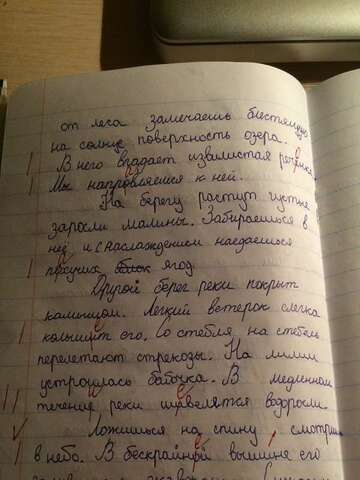 от леса замечаешь блестящую
на солнце поверхность озера.
В него впадает извилистая речонка.
Мы направляемся к ней.
На берегу растут густые
заросли малины. Забираешься в
неё и с наслаждением наедаешься
пахучих ягод.
Другой берег реки покрыт
камышом. Легкий ветерок слегка
колышит его. Со стебля на стебель
перелетают стрекозы. На лилии
устроилась бабочка. В медленном
течение реки шевелятся водоросли.
Ложишься на спину и смотришь
в небо. В бескрайный вышине его